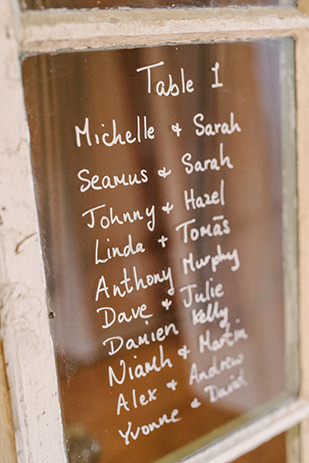 Table 1
Michelle & Sarah
Seamus & Sarah
Johnny & Hazel
Linda & Tomás
Anthony Murphy
Dave & Julie
Damien Kelly
Niamh & Martin
Alex & Andrew
Yvonne & David